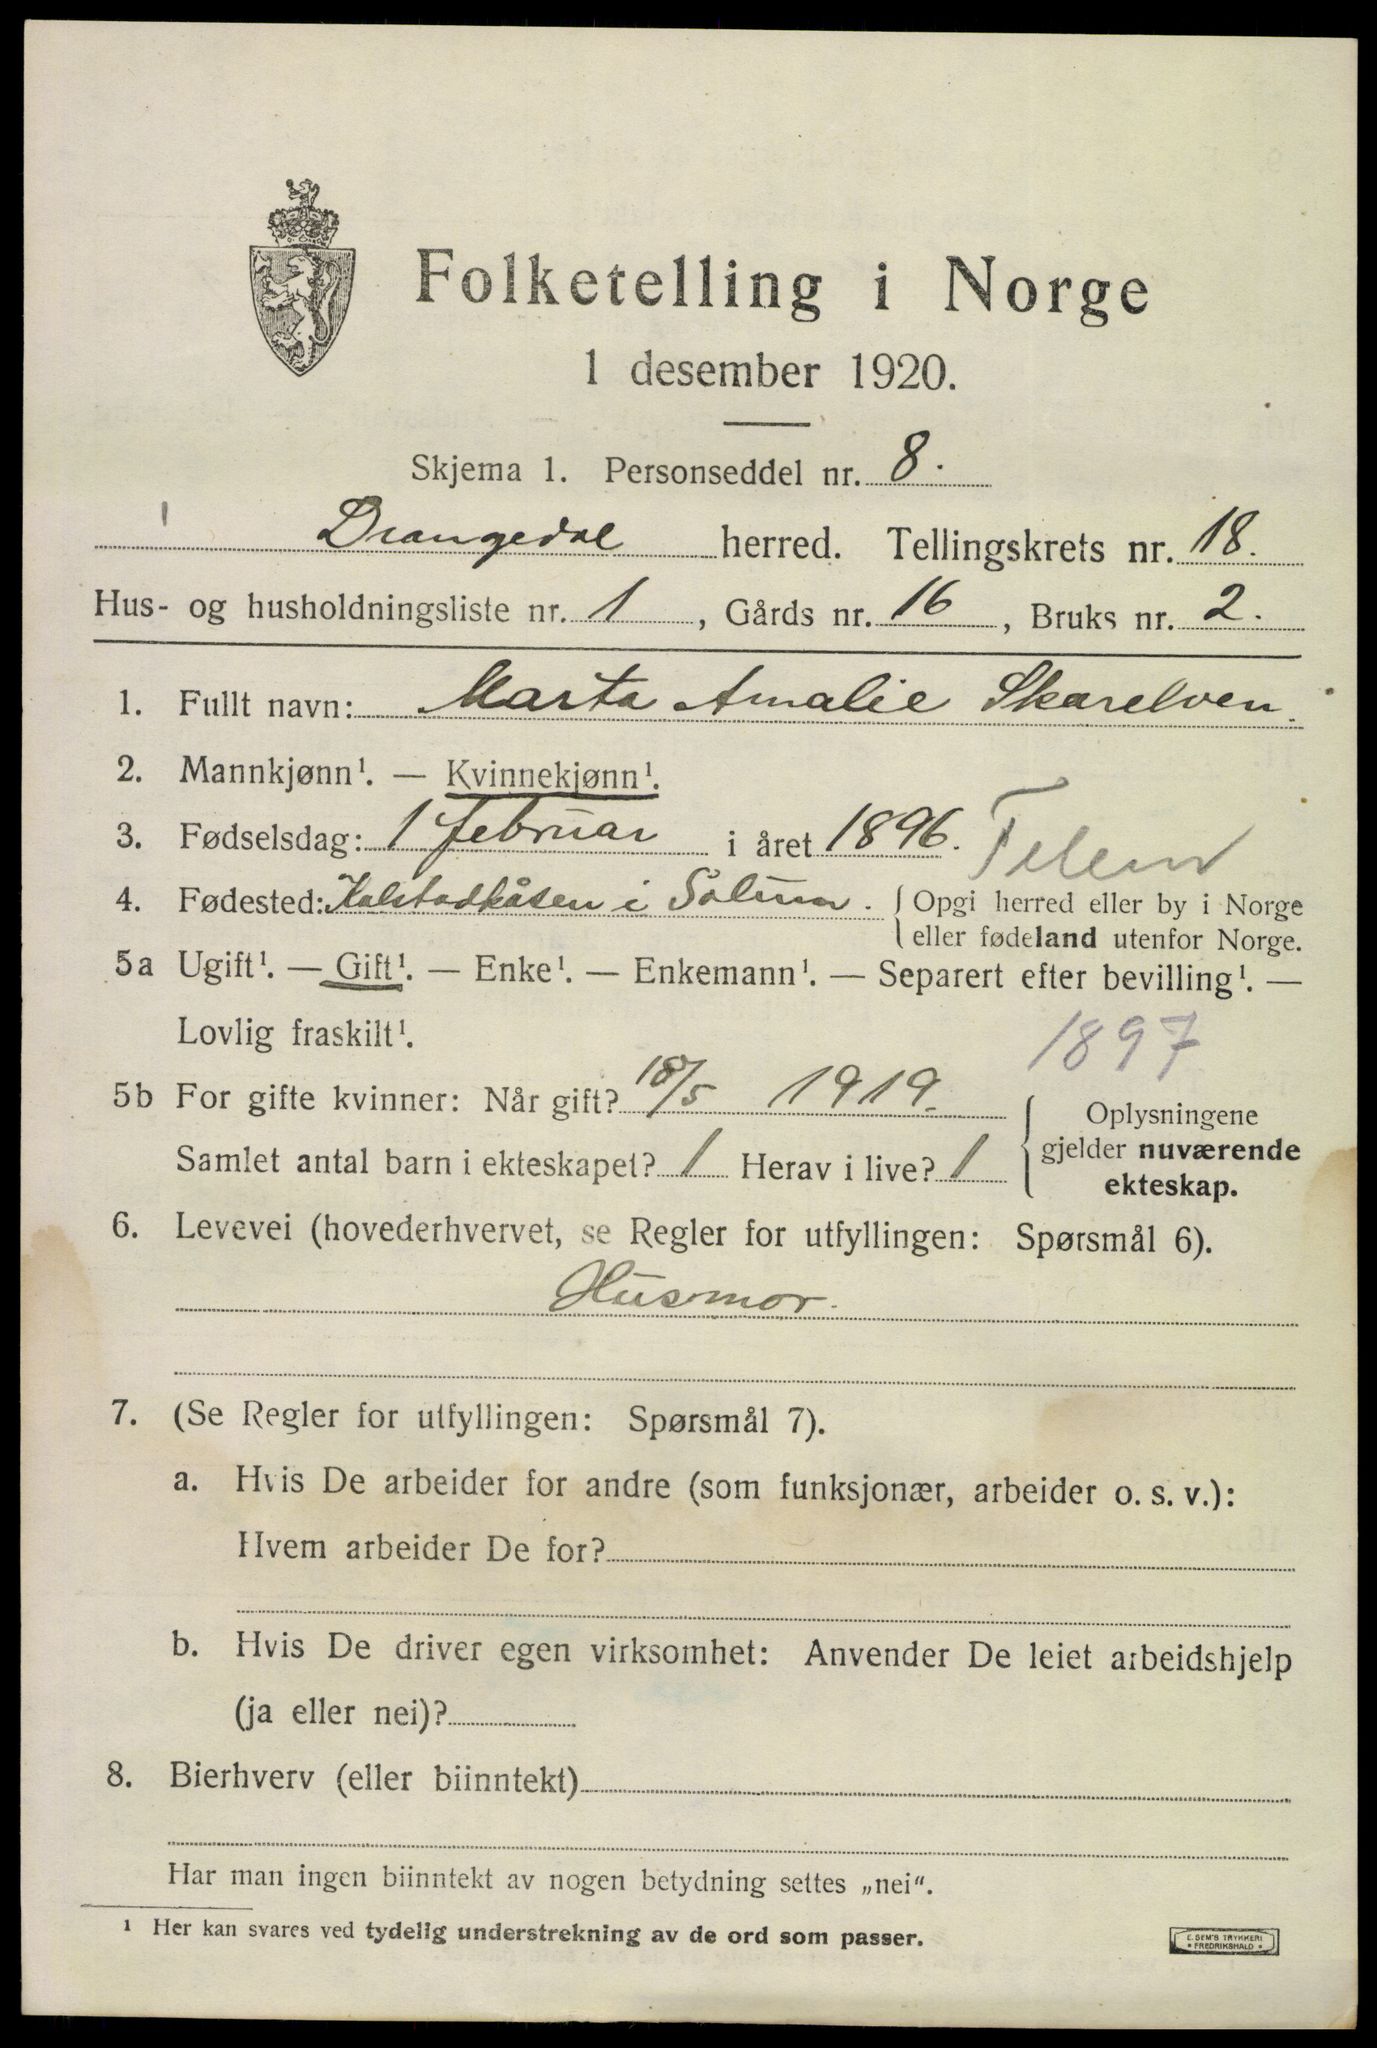 Folketelling i Norge
1 desember 1920.
Skjema 1. Personseddel nr. 8.
Drangedal herred. Tellingskrets nr. 18.
Hus- og husholdningsliste nr. 1, Gårds nr. 16, Bruks nr. 2.
1. Fullt navn: Marta Amalie Skarelven.
2. Mannkjønn¹. — Kvinnekjønn¹.
3. Fødselsdag: 1 februar i året 1896.
4. Fødested: i Solum. { Opgi herred eller by i Norge
eller fødeland utenfor Norge.
5a Ugift¹. — Gift¹. — Enke¹. — Enkemann¹. — Separert efter bevilling¹. —
Lovlig fraskilt¹.
1897
5b For gifte kvinner: Når gift? 18/5 1919. { Oplysningene
gjelder nuværende
ekteskap.
Samlet antal barn i ekteskapet? 1 Herav i live? 1
6. Levevei (hovederhvervet, se Regler for utfyllingen: Spørsmål 6).
Husmor.
7. (Se Regler for utfyllingen: Spørsmål 7).
a. Hvis De arbeider for andre (som funksjonær, arbeider o. s. v.):
Hvem arbeider De for?
b. Hvis De driver egen virksomhet: Anvender De leiet arbeidshjelp
(ja eller nei)?
8. Bierhverv (eller biinntekt)
Har man ingen biinntekt av nogen betydning settes „nei“.
¹ Her kan svares ved tydelig understrekning av de ord som passer.
E. SEM'S TRYKKERI
• FREDRIKSHALD •